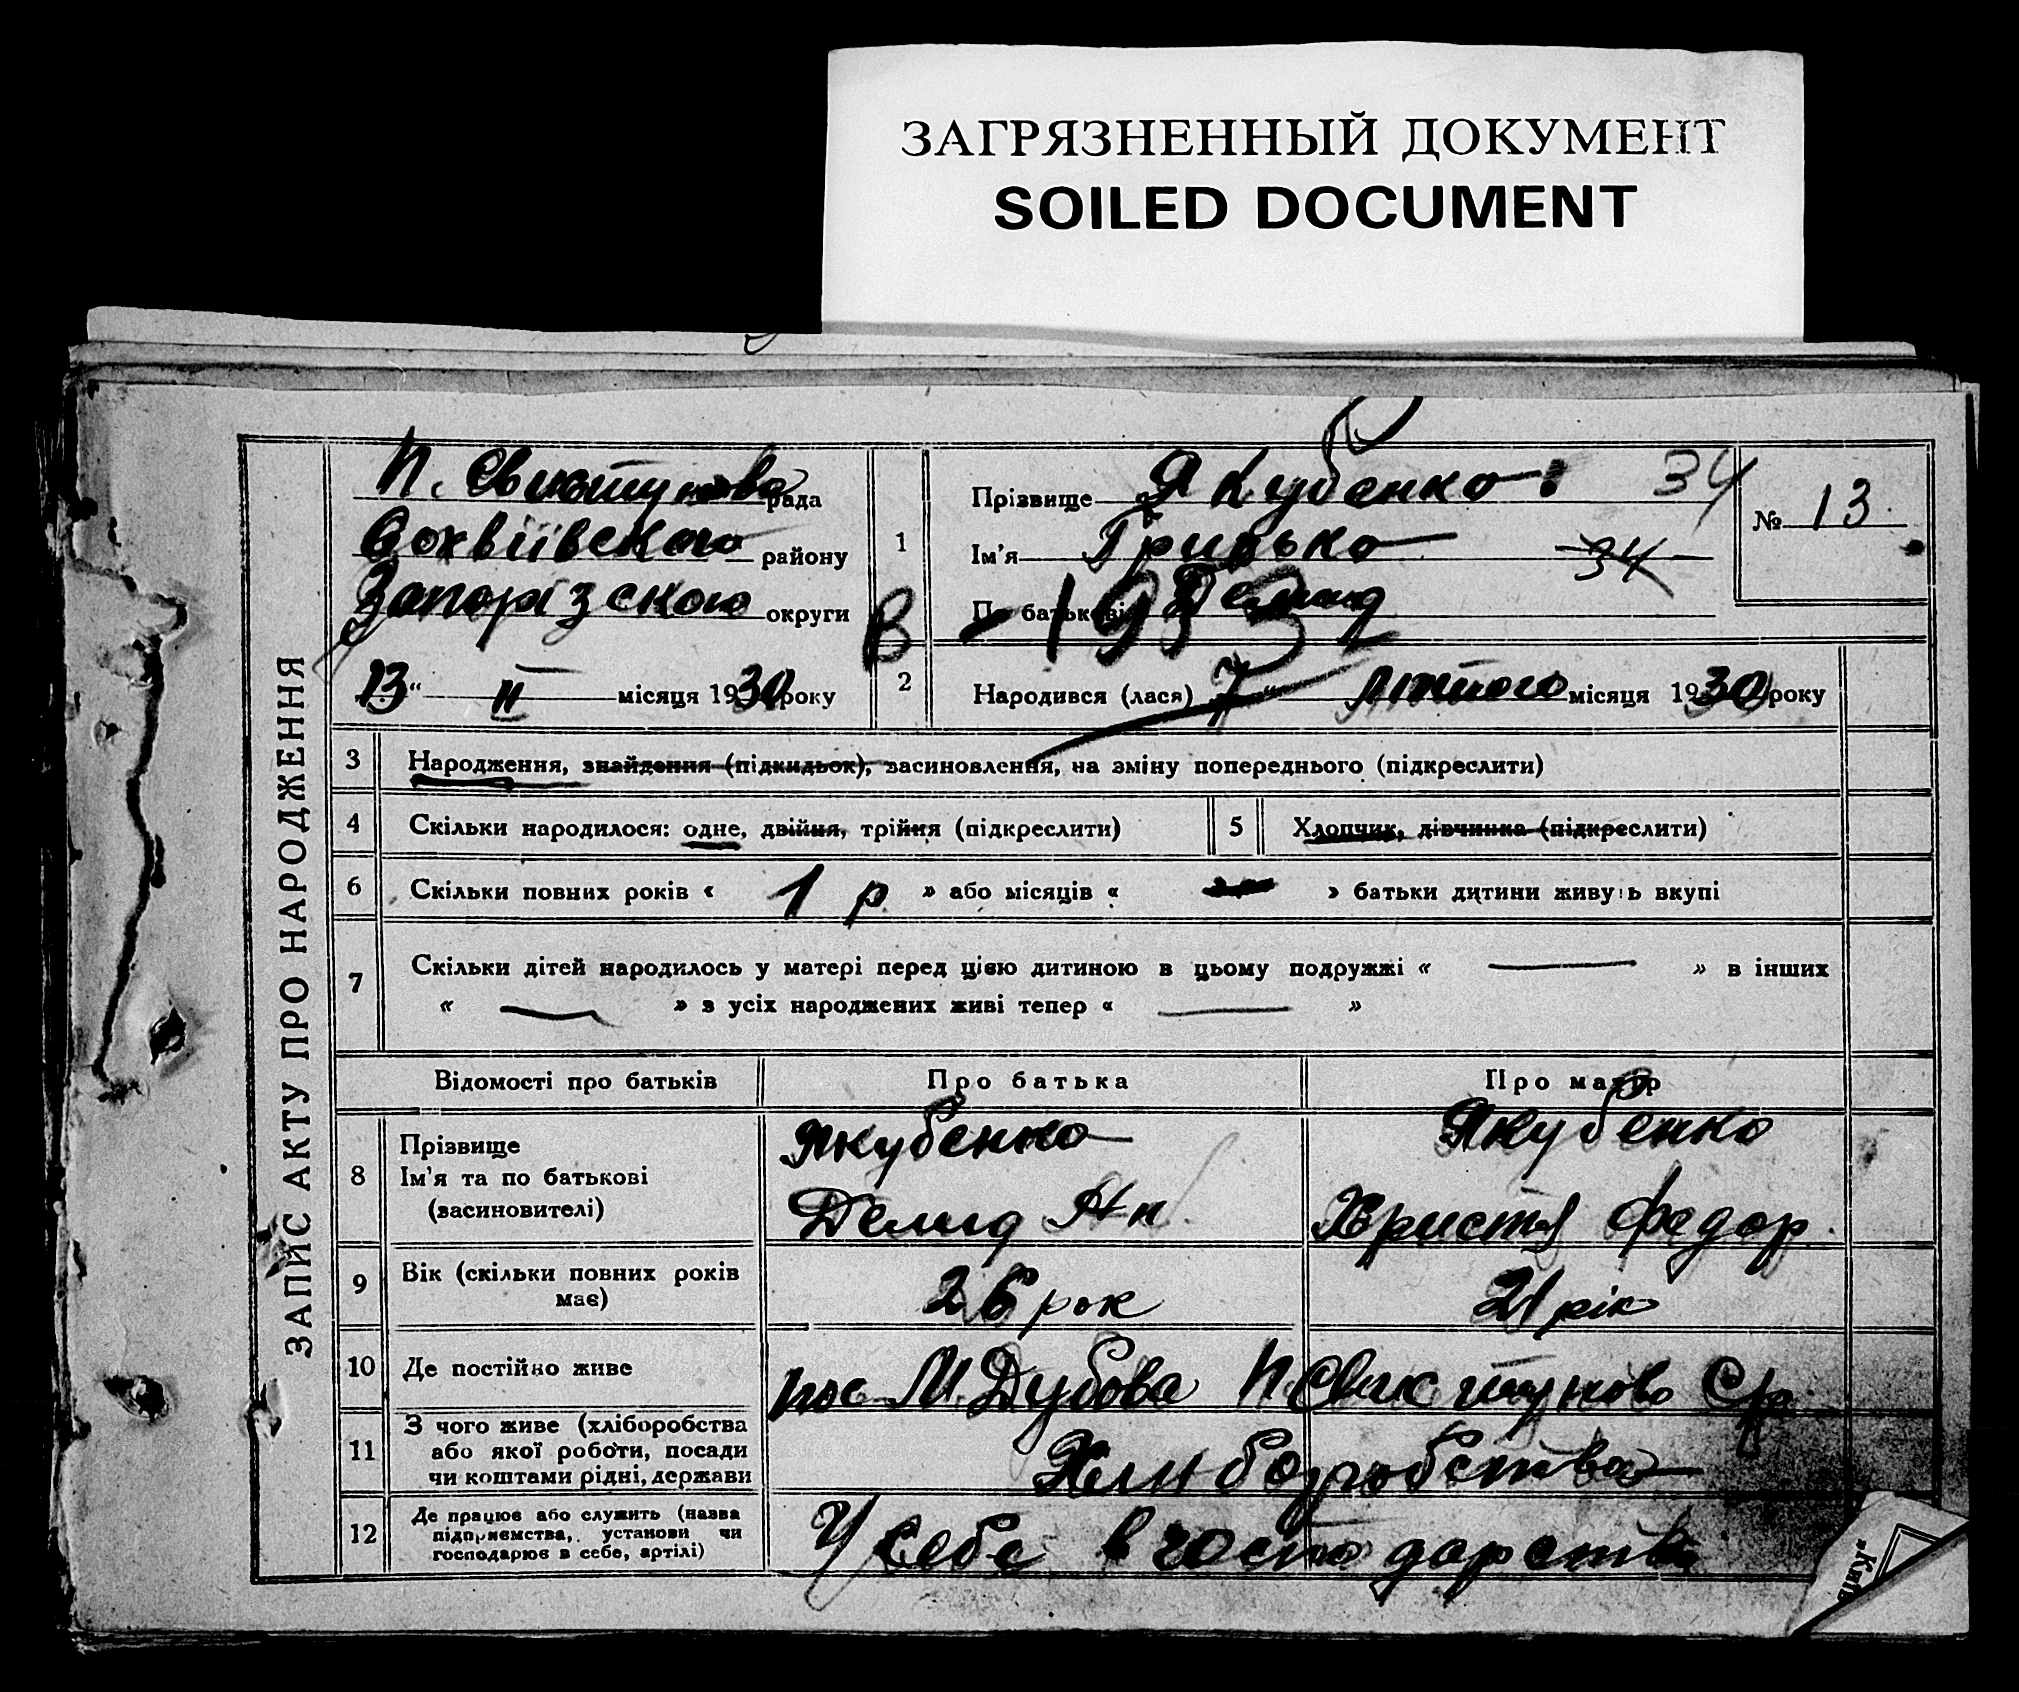 ЗАГРЯЗНЕННЫЙ ДОКУМЕНТ
SOILED DOCUMENT
ЗАПИС АКТУ ПРО НАРОДЖЕННЯ
П. Свистунова рада
району
Запорізскою округи
13 “ II місяця 1930 року
1
Прізвище Якубенко 34
Ім’я Грицько 34
По батькові Демид
№ 13
В - 1932
2
Народився (лася) 7 “ Лютого місяця 1930 року
3 Народження, знайдення (підкидьок), засиновлення, на зміну попереднього (підкреслити)
4 Скільки народилося: одне, двійня, трійня (підкреслити)
5 Хлопчик, дівчинка (підкреслити)
6 Скільки повних років « 1 р » або місяців « » батьки дитини живуть вкупі
7 Скільки дітей народилось у матері перед цією дитиною в цьому подружжі « — » в інших
« — » з усіх народжених живі тепер « — »
Відомості про батьків Про батька Про матір
8 Прізвище
Ім’я та по батькові
(засиновителі)
Якубенко
Демид
Якубенко
Христя Федор.
9 Вік (скільки повних років
має)
26 рок 21 рік
10 Де постійно живе пос М. Дубова П Свистуново Ср
11 З чого живе (хліборобства
або якої роботи, посади
чи коштами рідні, держави
Хлиборобства
12 Де працює або служить (назва
підприємства, установи чи
господарює в себе, артілі)
У себе в господарстві
„Київ